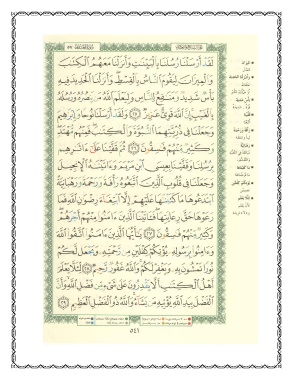 لَقَدْ أَرْسَلْنَا رُسُلَنَا بِالْبَيِّنَٰتِ وَأَنزَلْنَا مَعَهُمُ الْكِتَٰبَ
وَالْمِيزَانَ لِيَقُومَ النَّاسُ بِالْقِسْطِ وَأَنزَلْنَا الْحَدِيدَ فِيهِ
بَأْسٌ شَدِيدٌ وَمَنَٰفِعُ لِلنَّاسِ وَلِيَعْلَمَ اللَّهُ مَن يَنصُرُهُ وَرُسُلَهُ
بِالْغَيْبِ إِنَّ اللَّهَ قَوِيٌّ عَزِيزٌ ٢٥ وَلَقَدْ أَرْسَلْنَا نُوحًا وَإِبْرَٰهِيمَ
وَجَعَلْنَا فِي ذُرِّيَّتِهِمَا النُّبُوَّةَ وَالْكِتَٰبَ فَمِنْهُم مُّهْتَدٍ
وَكَثِيرٌ مِّنْهُمْ فَٰسِقُونَ ٢٦ ثُمَّ قَفَّيْنَا عَلَىٰ ءَاثَٰرِهِم
بِرُسُلِنَا وَقَفَّيْنَا بِعِيسَى ابْنِ مَرْيَمَ وَءَاتَيْنَٰهُ الْإِنجِيلَ
وَجَعَلْنَا فِي قُلُوبِ الَّذِينَ اتَّبَعُوهُ رَأْفَةً وَرَحْمَةً وَرَهْبَانِيَّةً
ابْتَدَعُوهَا مَا كَتَبْنَٰهَا عَلَيْهِمْ إِلَّا ابْتِغَاءَ رِضْوَٰنِ اللَّهِ فَمَا
رَعَوْهَا حَقَّ رِعَايَتِهَا فَـَٔاتَيْنَا الَّذِينَ ءَامَنُوا مِنْهُمْ أَجْرَهُمْ
وَكَثِيرٌ مِّنْهُمْ فَٰسِقُونَ ٢٧ يَٰأَيُّهَا الَّذِينَ ءَامَنُوا اتَّقُوا اللَّهَ
وَءَامِنُوا بِرَسُولِهِ يُؤْتِكُمْ كِفْلَيْنِ مِن رَّحْمَتِهِ وَيَجْعَل لَّكُمْ
نُورًا تَمْشُونَ بِهِ وَيَغْفِرْ لَكُمْ وَاللَّهُ غَفُورٌ رَّحِيمٌ ٢٨ لِّئَلَّا يَعْلَمَ
أَهْلُ الْكِتَٰبِ أَلَّا يَقْدِرُونَ عَلَىٰ شَيْءٍ مِّن فَضْلِ اللَّهِ وَأَنَّ
الْفَضْلَ بِيَدِ اللَّهِ يُؤْتِيهِ مَن يَشَاءُ وَاللَّهُ ذُو الْفَضْلِ الْعَظِيمِ ٢٩
٥٤١